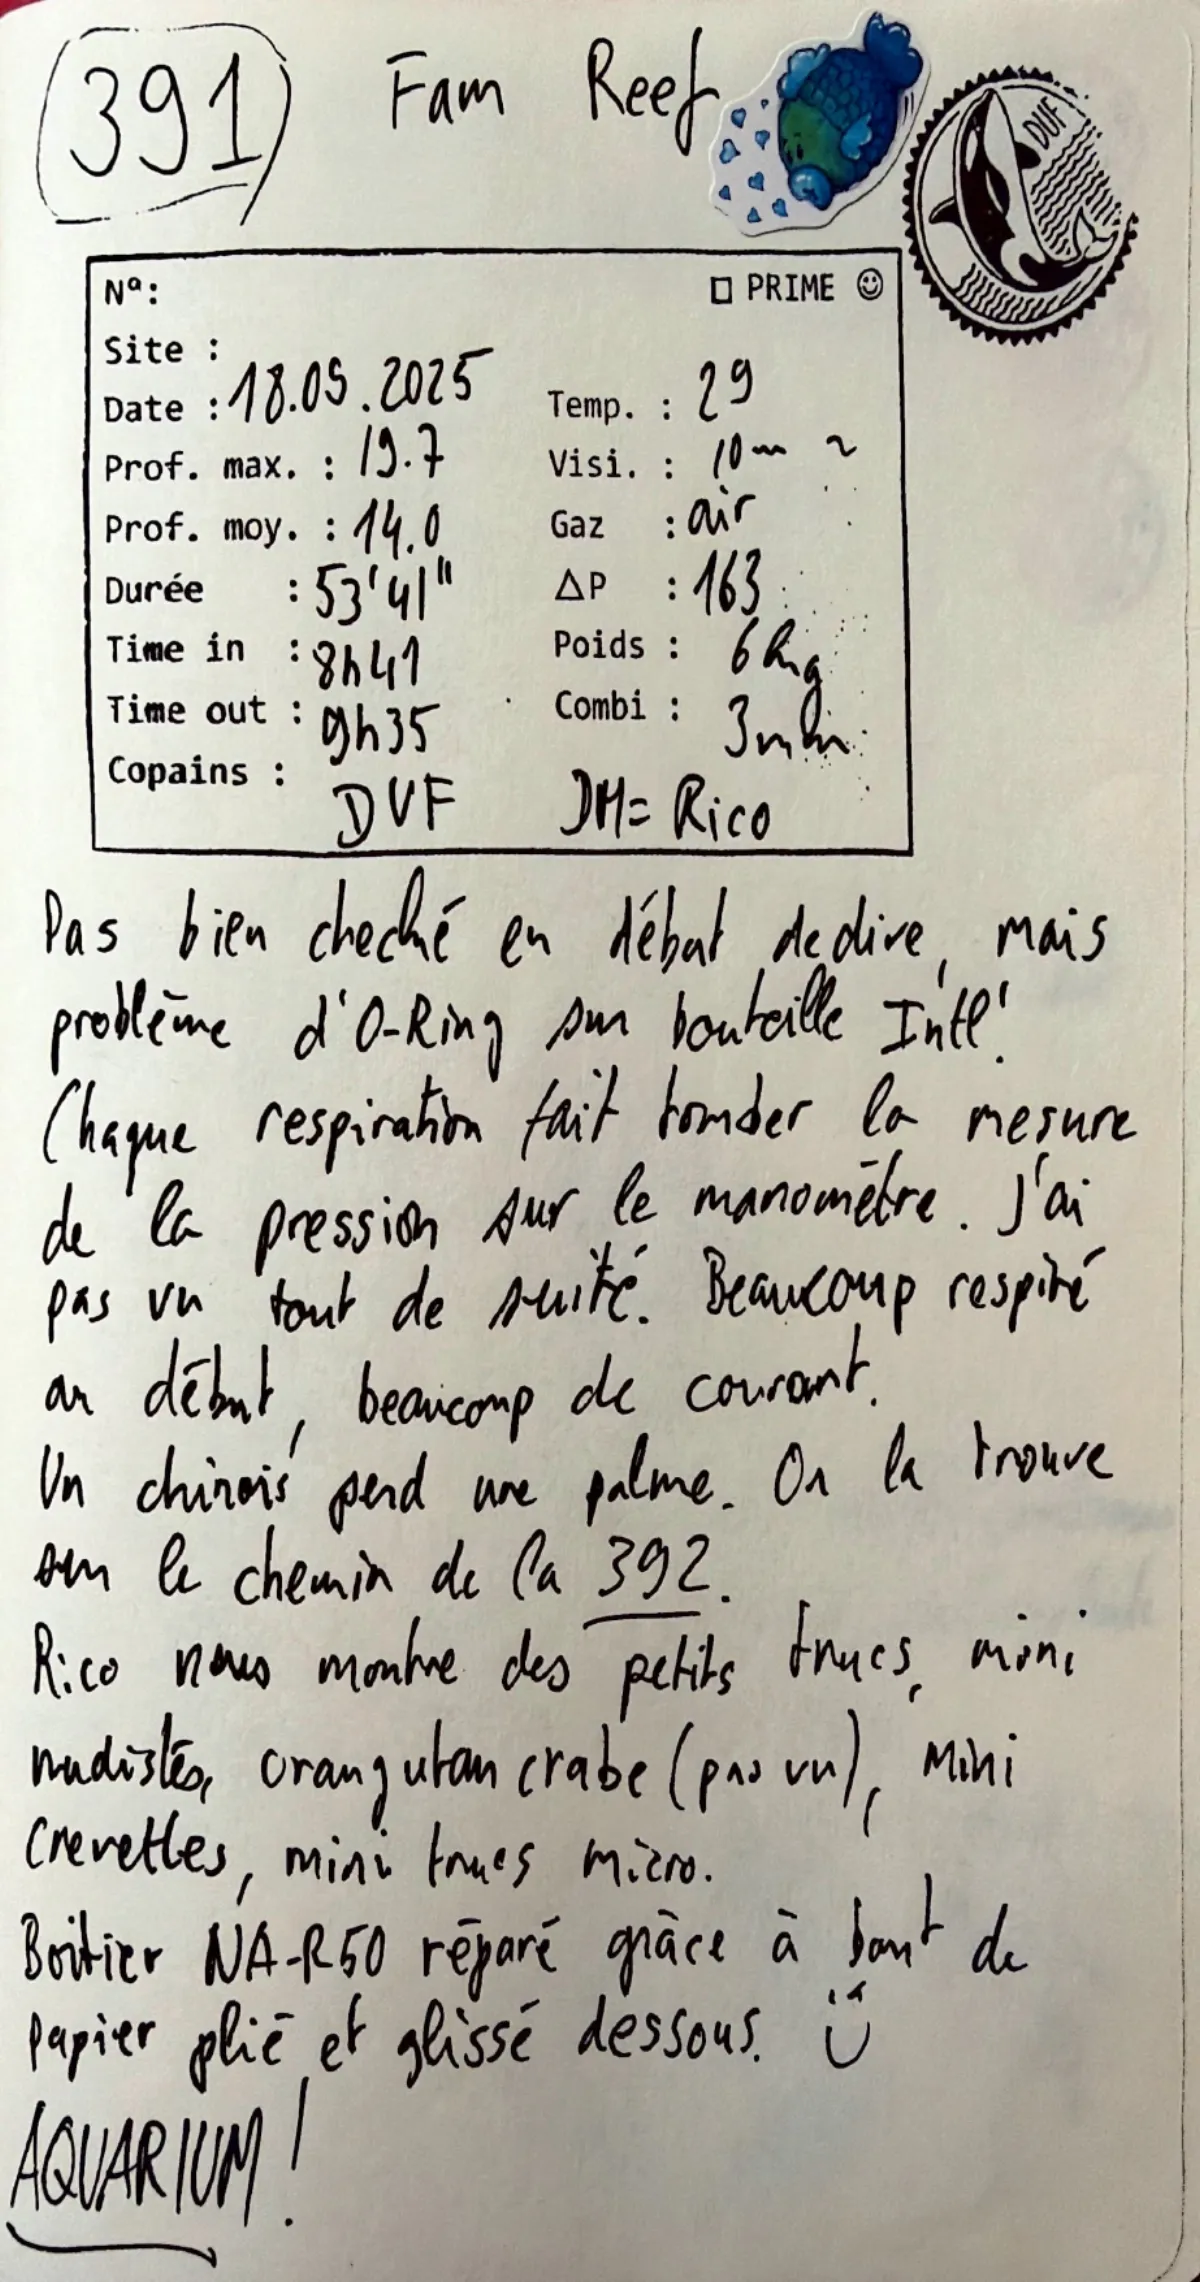 391 Fam Reef
DUF
Nº: □ PRIME ☺
Site :
Date : 18.09.2025 Temp. : 29
Prof. max. : 19.7 Visi. : 10m ~
Prof. moy. : 14.0 Gaz : air
Durée : 53'41" ΔP : 163
Time in : 8h41 Poids : 6 kg
Time out : 9h35 Combi : 3mm
Copains : DUF DM= Rico
Pas bien checké en début de dive, mais
problème d'O-Ring sur bouteille Int'l!
Chaque respiration fait tomber la mesure
de la pression sur le manomètre. J'ai
pas vu tout de suite. Beaucoup respiré
au début, beaucoup de courant.
Un chinois perd une palme. On la trouve
sur le chemin de la 392.
Rico nous montre des petits trucs, mini
nudistes, orangutan crabe (pas vu), mini
crevettes, mini trucs micro.
Boîtier NA-R50 réparé grâce à bout de
papier plié et glissé dessous.
AQUARIUM!